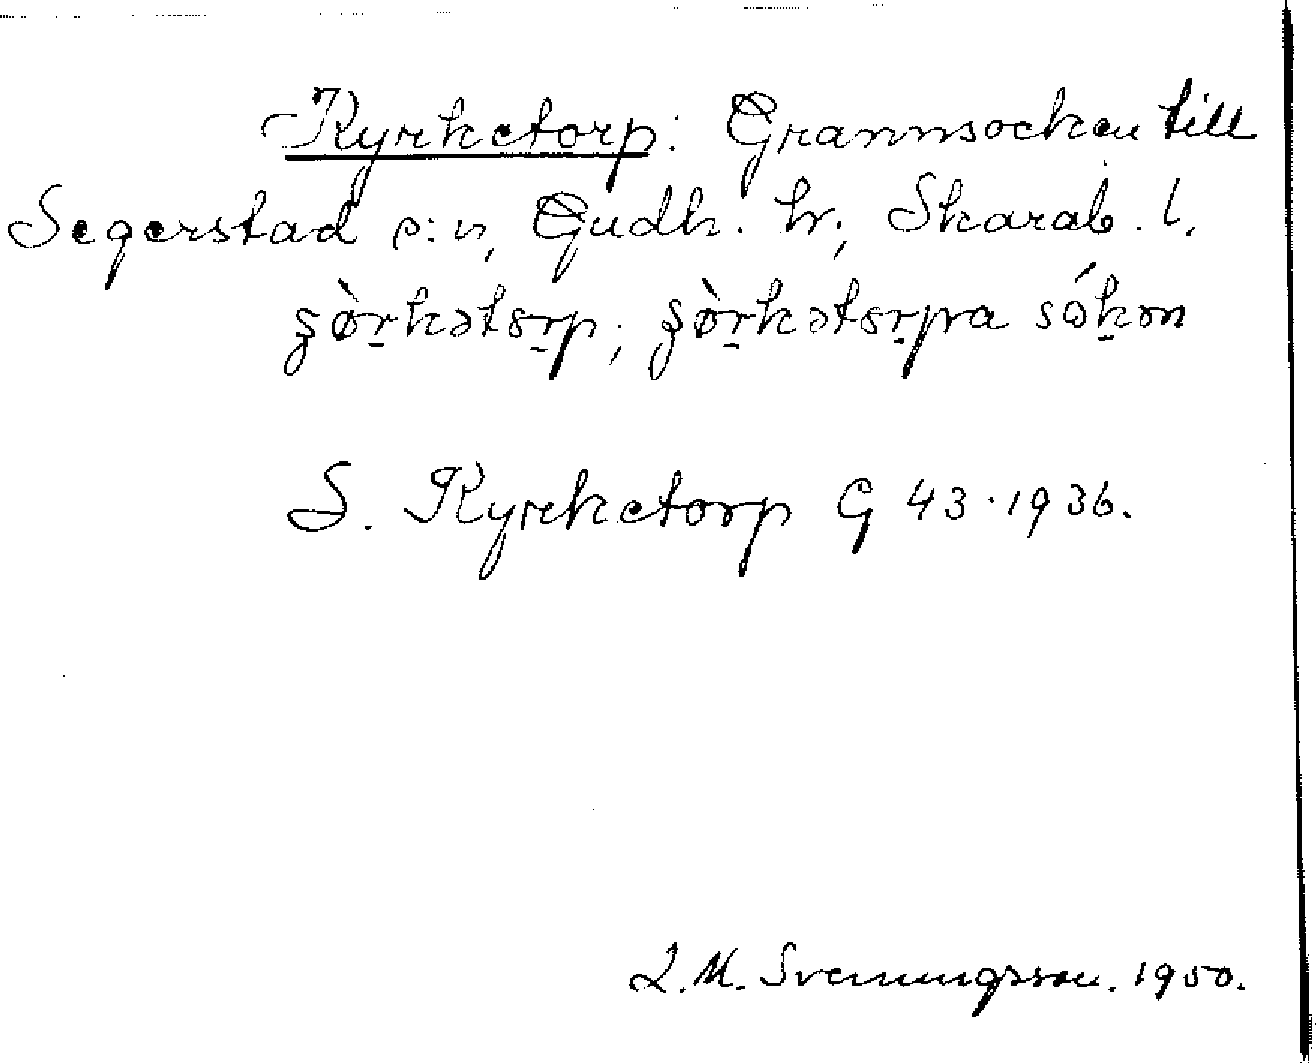 Kyrketorp: Grannsocken till
Segerstad s:n, Gudh. hr, Skarab. l.
şò̱rkətərp; şò̱rkətərpra sókən
S. Kyrketorp G 43·1936.
L.M. Svenungsson. 1950.